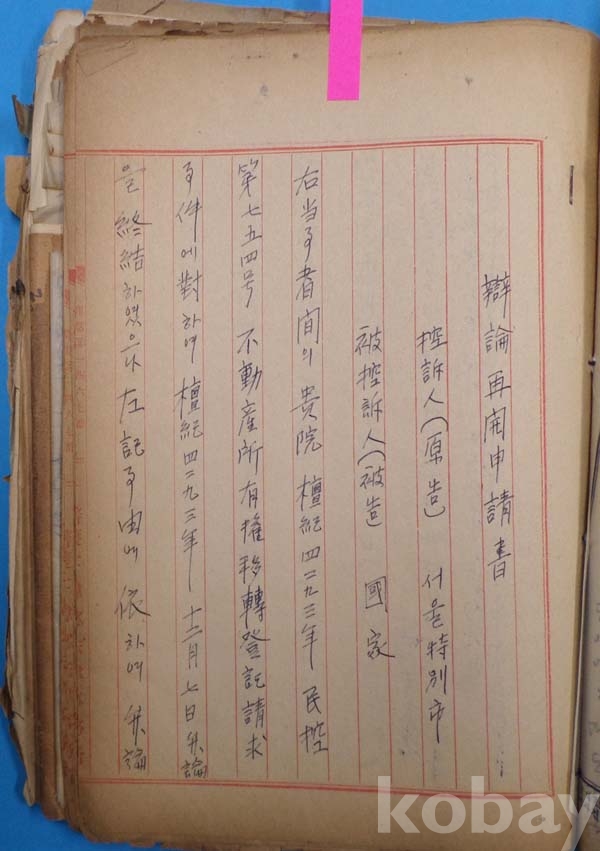 辯論再開申請書
控訴人(原告) 서울特別市
被控訴人(被告) 國家
右当事者間의 貴院 檀紀四二九三年 民控
第七五四号 不動産所有權移轉登記請求
事件에 對하여 檀紀四二九三年 十二月七日 弁論
을 終結하였으나 左記事由에 依하여 弁論
kobay